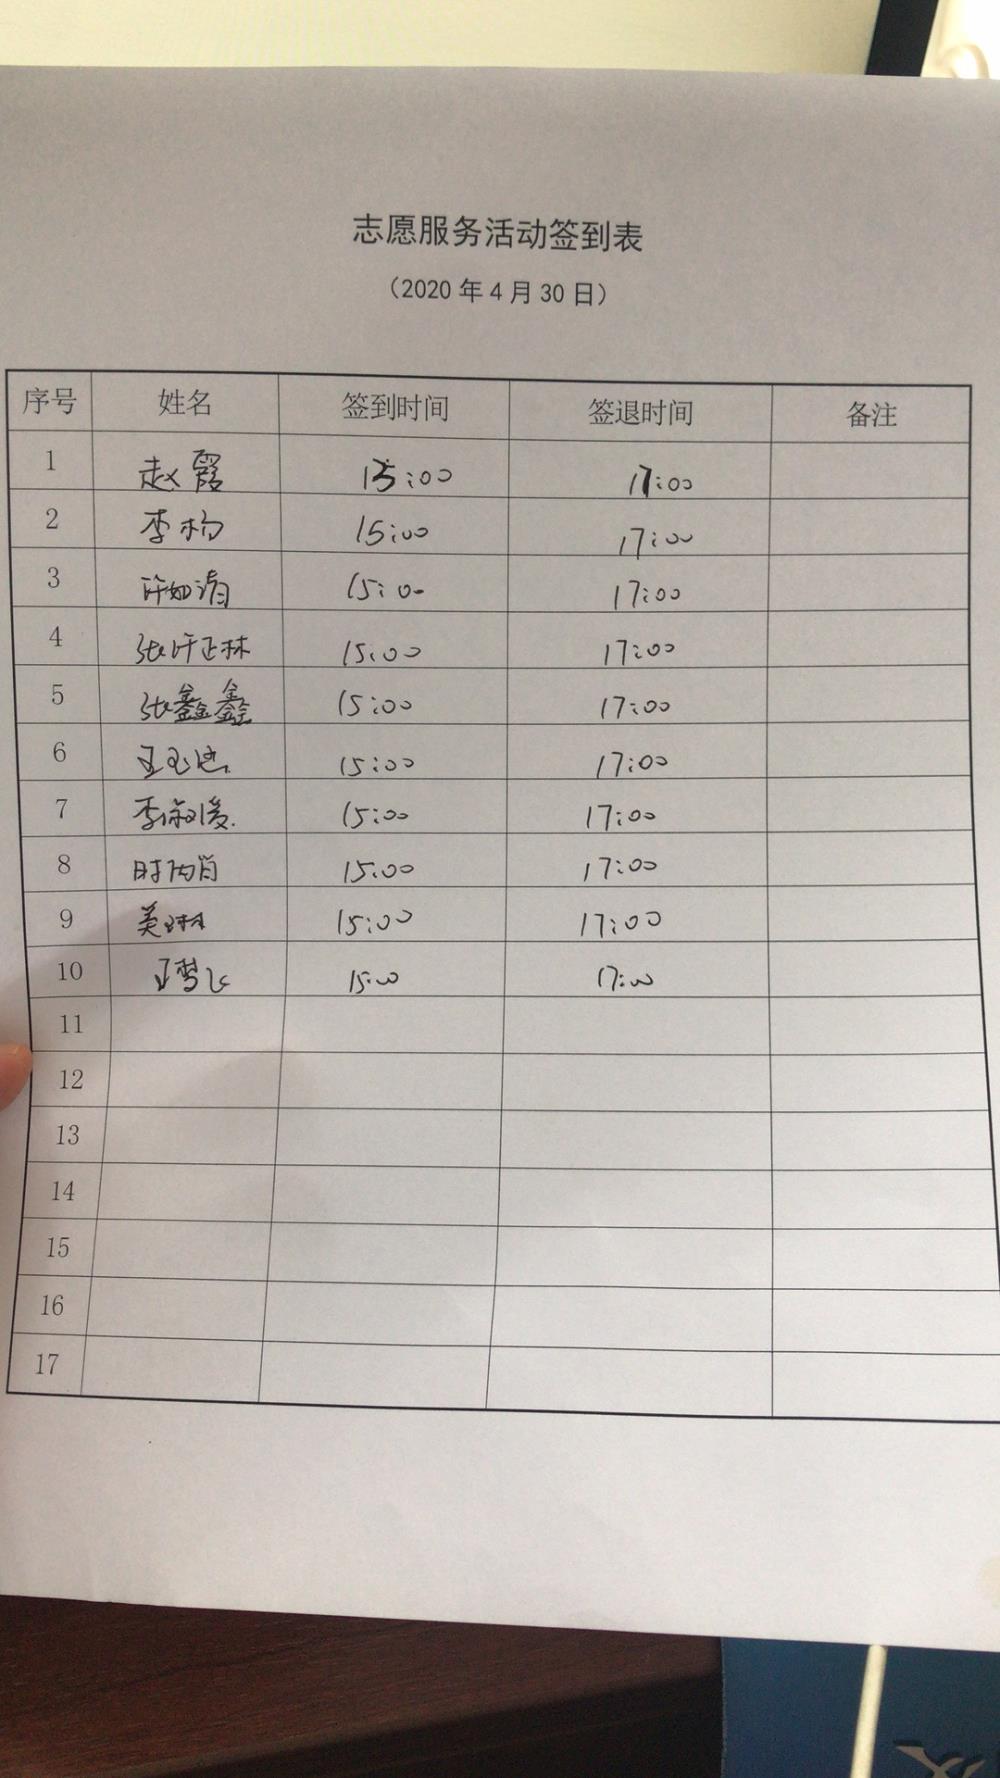 志愿服务活动签到表
（2020年4月30日）
序号 姓名 签到时间 签退时间 备注
1 赵霞 15:00 17:00
2 李杨 15:00 17:00
3 许如清 15:00 17:00
4 张许正林 15:00 17:00
5 张鑫鑫 15:00 17:00
6 15:00 17:00
7 李淑媛 15:00 17:00
8 15:00 17:00
9 15:00 17:00
10 王梦飞 15:00 17:00
11
12
13
14
15
16
17